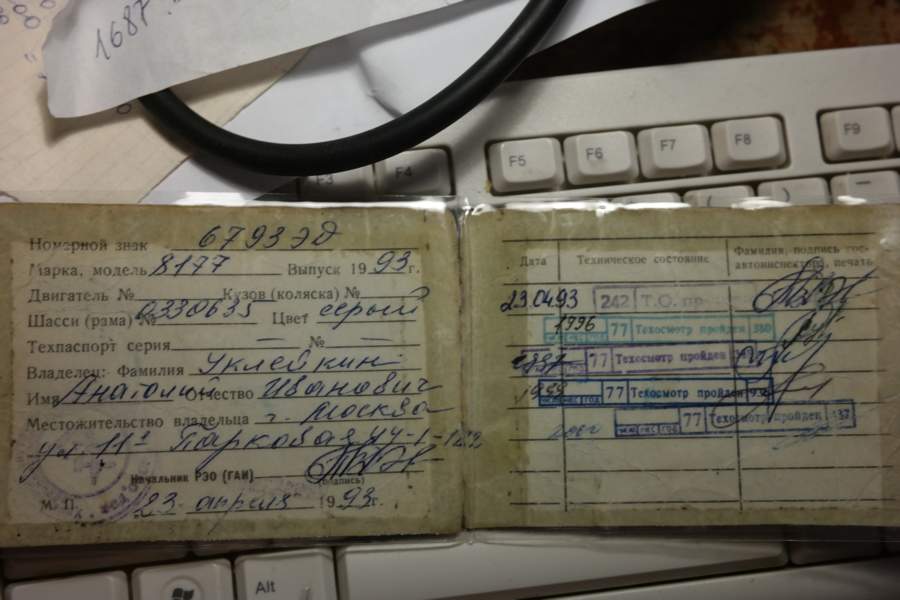 1687
F3 F4 F5 F6 F7 F8 F9
Номерной знак 6793ЭД
Марка, модель 8177 Выпуск 1993г.
Двигатель № — Кузов (коляска) № —
Шасси (рама) № 0330635 Цвет серый
Техпаспорт серия — № —
Владелец: Фамилия Уклейкин
Имя Анатолий Отчество Иванович
Местожительство владельца г. Москва
ул. 11я Парковая
Начальник РЭО (ГАИ)
(подпись)
М. П. 23 апреля 1993г.
Дата Техническое состояние Фамилия, подпись гос-
автоинспектора, печать
23.04.93 242 Т.О. пр
1996 77 Техосмотр пройден 380
77 Техосмотр пройден
77 Техосмотр пройден
77 Техосмотр пройден 437
Alt